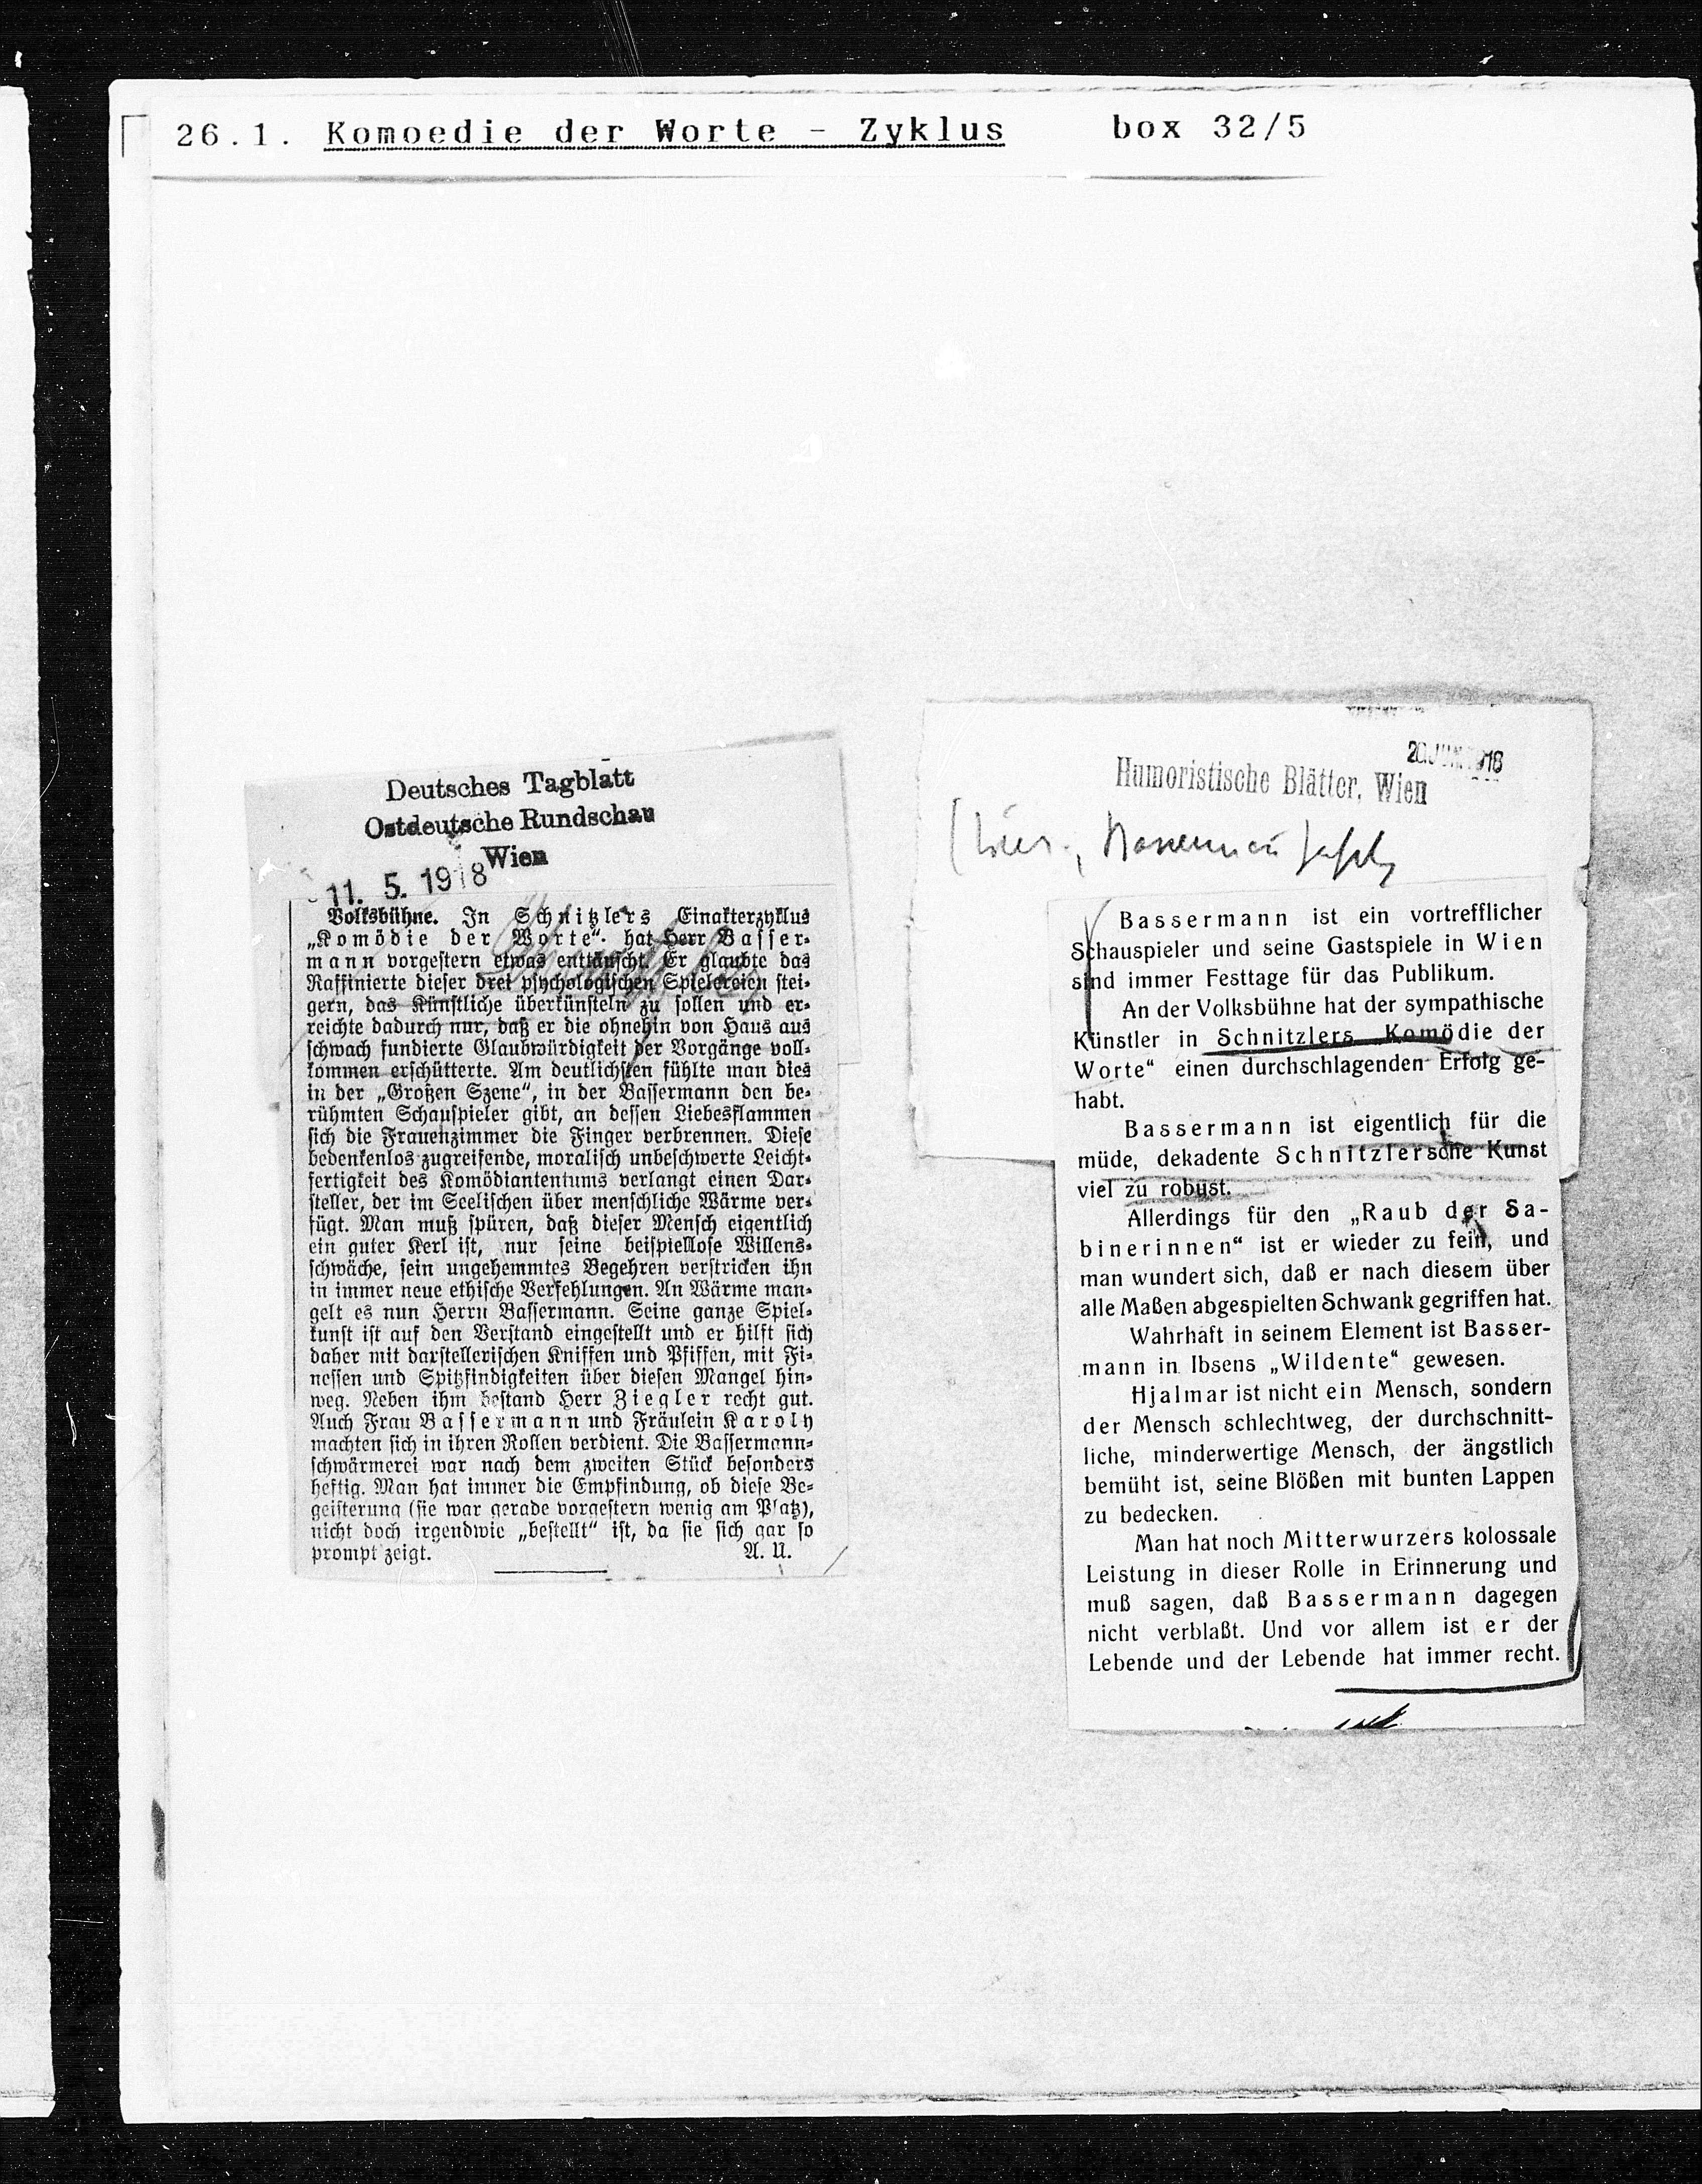 26.1. Komoedie der Worte - Zyklus box 32/5
Deutsches Tagblatt
Ostdeutsche Rundschau
Wien
11. 5. 1918
Volksbühne. In Schnitzlers Einakterzyklus
„Komödie der Worte“ hat Herr Basser-
mann vorgestern etwas enttäuscht. Er glaubte das
Raffinierte dieser drei psychologischen Spielereien stei-
gern, das Künstliche überkünsteln zu sollen und er-
reichte dadurch nur, daß er die ohnehin von Haus aus
schwach fundierte Glaubwürdigkeit der Vorgänge voll-
kommen erschütterte. Am deutlichsten fühlte man dies
in der „Großen Szene“, in der Bassermann den be-
rühmten Schauspieler gibt, an dessen Liebesflammen
sich die Frauenzimmer die Finger verbrennen. Diese
bedenkenlos zugreifende, moralisch unbeschwerte Leicht-
fertigkeit des Komödiantentums verlangt einen Dar-
steller, der im Seelischen über menschliche Wärme ver-
fügt. Man muß spüren, daß dieser Mensch eigentlich
ein guter Kerl ist, nur seine beispiellose Willens-
schwäche, sein ungehemmtes Begehren verstricken ihn
in immer neue ethische Verfehlungen. An Wärme man-
gelt es nun Herrn Bassermann. Seine ganze Spiel-
kunst ist auf den Verstand eingestellt und er hilft sich
daher mit darstellerischen Kniffen und Pfiffen, mit Fi-
nessen und Spitzfindigkeiten über diesen Mangel hin-
weg. Neben ihm bestand Herr Ziegler recht gut.
Auch Frau Bassermann und Fräulein Karoly
machten sich in ihren Rollen verdient. Die Bassermann-
schwärmerei war nach dem zweiten Stück besonders
heftig. Man hat immer die Empfindung, ob diese Be-
geisterung (sie war gerade vorgestern wenig am Platz),
nicht doch irgendwie „bestellt“ ist, da sie sich gar so
prompt zeigt. A. U.
20. JUN. 1918
Humoristische Blätter, Wien
Bassermann ist ein vortrefflicher
Schauspieler und seine Gastspiele in Wien
sind immer Festtage für das Publikum.
An der Volksbühne hat der sympathische
Künstler in Schnitzlers „Komödie der
Worte“ einen durchschlagenden Erfolg ge-
habt.
Bassermann ist eigentlich für die
müde, dekadente Schnitzlersche Kunst
viel zu robust.
Allerdings für den „Raub der Sa-
binerinnen“ ist er wieder zu fein, und
man wundert sich, daß er nach diesem über
alle Maßen abgespielten Schwank gegriffen hat.
Wahrhaft in seinem Element ist Basser-
mann in Ibsens „Wildente“ gewesen.
Hjalmar ist nicht ein Mensch, sondern
der Mensch schlechtweg, der durchschnitt-
liche, minderwertige Mensch, der ängstlich
bemüht ist, seine Blößen mit bunten Lappen
zu bedecken.
Man hat noch Mitterwurzers kolossale
Leistung in dieser Rolle in Erinnerung und
muß sagen, daß Bassermann dagegen
nicht verblaßt. Und vor allem ist er der
Lebende und der Lebende hat immer recht.